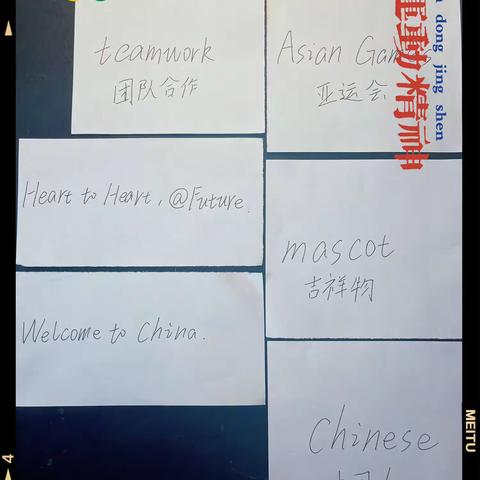 teamwork
团队合作
Asian Games
亚运会
dong jing shen
運動精神
Heart to Heart, @Future.
mascot
吉祥物
Welcome to China.
Chinese
MEITU
4